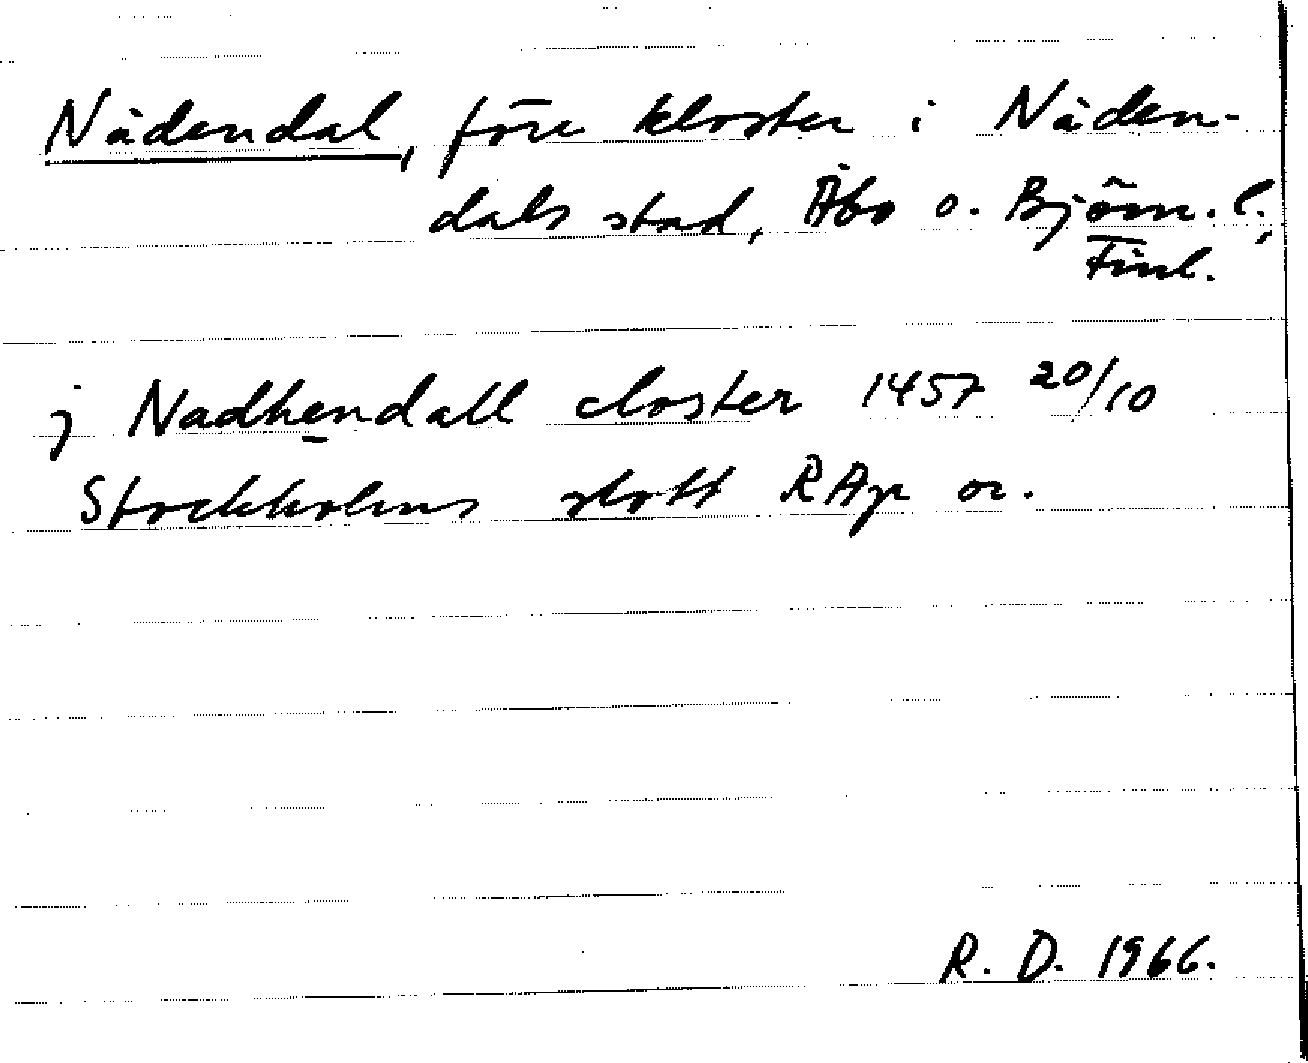 Nådendal, före kloster i Nåden-
dals stad, Åbo o. Björn. l.,
Finl.
j Nadhendall closter 1457 20/10
Stockholms slott RAp or.
R. D. 1966.